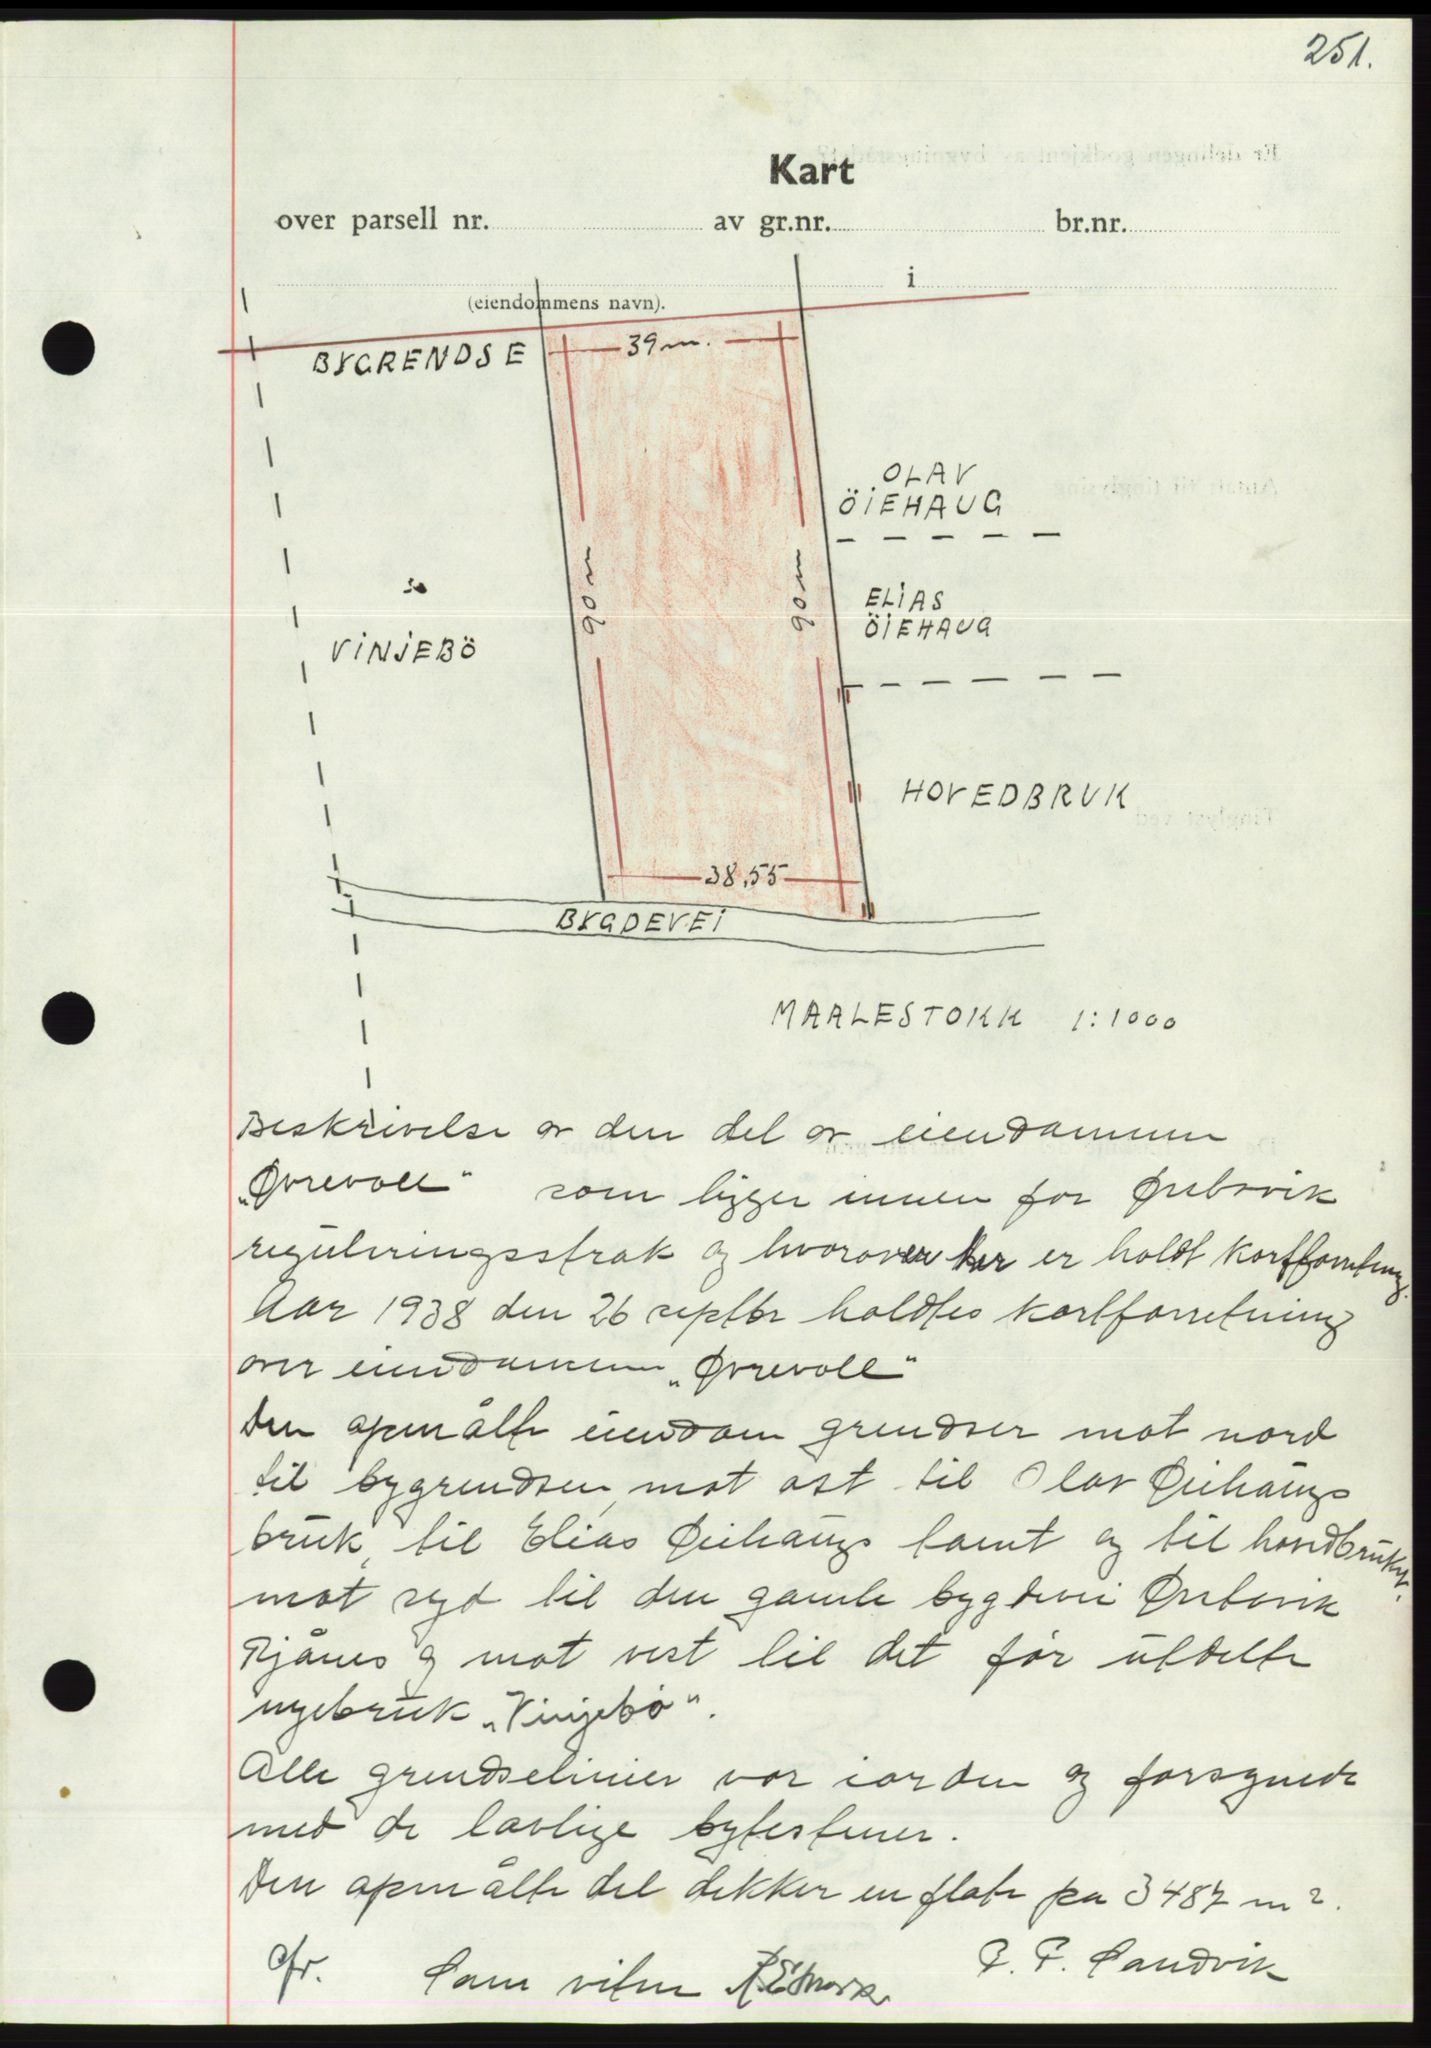 251.
Kart
over parsell nr. av gr.nr. br.nr.
i
(eiendommens navn).
BYGRENDSE
39 m.
OLAV
ÖIEHAUG
90 m
90 m
ELIAS
ÖIEHAUG
VINJEBÖ
HOVEDBRUK
38,55
BYGDEVEI
MAALESTOKK 1:1000
Beskrivelse av den del av eiendommen
„Øvrevoll" som ligger innen for Ørstavik
reguleringsstrøk og hvorover her er holdt kartforretning.
Aar 1938 den 26 septbr holdtes kartforretning
over eiendommen „Øvrevoll"
Den opmålte eiendom grendser mot nord
til bygrendsen, mot øst til Olav Øiehaugs
bruk, til Elias Øiehaugs tomt og til hovedbruket,
mot syd til den gamle bygdevei Ørstavik
og mot vest til det før utdelte
nyebruk „Vinjebö".
Alle grendselinier var i orden og forsynede
med de lovlige bytestener.
Den opmålte del dekker en flate på 3487 m².
P. P. Sandvik
Som vitne